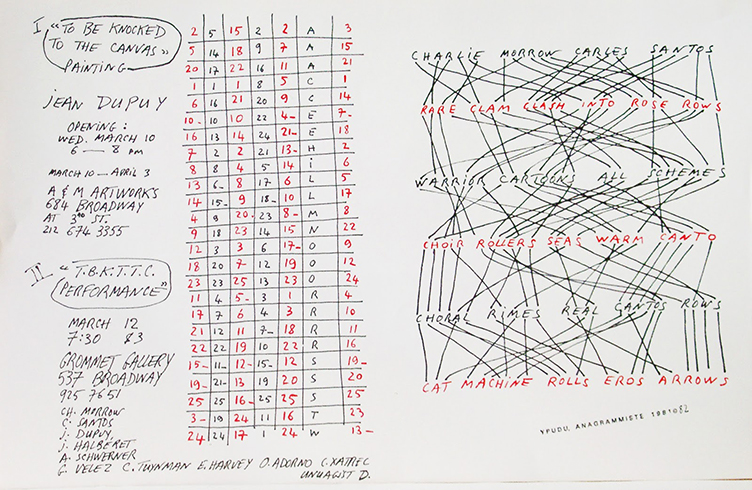 I "TO BE KNOCKED
TO THE CANVAS"
PAINTING
JEAN DUPUY
OPENING:
WED. MARCH 10
6 — 8 PM
MARCH 10 — APRIL 3
A & M ARTWORKS
684 BROADWAY
AT 3RD ST.
212 674 3355
II "T.B.K.T.T.C.
PERFORMANCE"
MARCH 12
7:30 $3
GROMMET GALLERY
537 BROADWAY
925 7651
CH. MORROW
C. SANTOS
J. DUPUY,
J. HALBERET
A. SCHWERNER
G. VELEZ C. TUYNMAN E. HARVEY O. ADORNO C. XATREC
UNUAGIST D.
2 5 15 2 2 A 3
5 14 18 9 7 A 15
20 17 22 16 11 A 21
1 1 1 8 5 C 1
6 16 21 20 9 C 14
10- 10 10 22 4- E 7-
16 13 14 24 21- E 18
7 2 2 21 13- H 2
8 8 4 5 14 i 6
13 6- 8 17 6 L 5
14 15- 9 18- 10 L 17
4 9 20- 23 8- M 8
9 18 23 14 15 N 22
12 3 3 6 17- O 9
18 20 7 12 19 O 12
23 23 25 13 23 O 24
11 4 5- 3 1 R 4
17 7 6 4 3 R 10
21 12 11 7- 18 R 11
22 22 19 10 22 R 16
15- 11- 12- 15- 12 S 19-
19- 21- 13 19 20 S 20
25 25 16- 25 25 S 25
3- 19 24 11 16 T 23
24 24 17 1 24 W 13-
CHARLIE MORROW CARLES SANTOS
RARE CLAM CLASH INTO ROSE ROWS
WARRIOR CARTOONS ALL SCHEMES
CHOIR ROLLERS SEAS WARM CANTO
CHORAL RIMES REAL CANTOS ROWS
CAT MACHINE ROLLS EROS ARROWS
YPUDU, ANAGRAMMISTE 1981@82